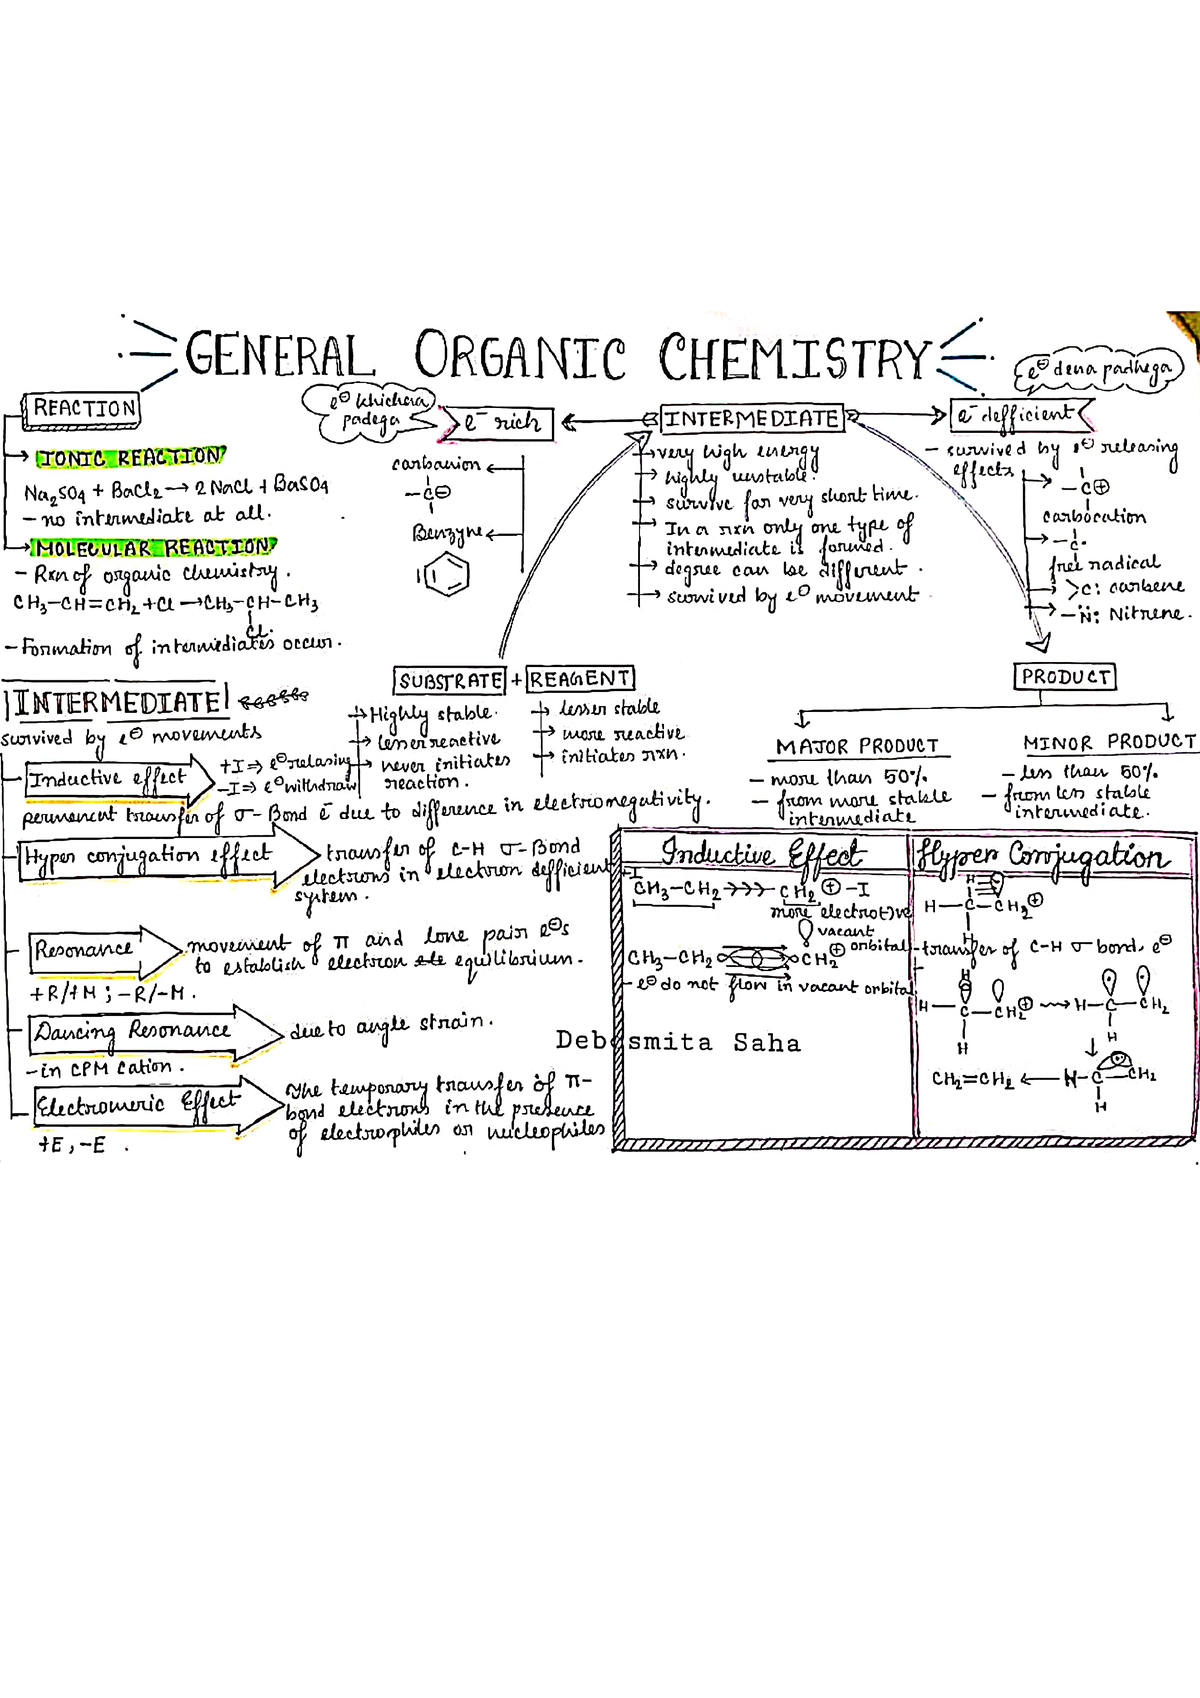 GENERAL ORGANIC CHEMISTRY
REACTION
IONIC REACTION
Na2SO4 + BaCl2 → 2NaCl + BaSO4
- no intermediate at all.
MOLECULAR REACTION
- Rxn of organic chemistry.
CH3-CH=CH2 + Cl → CH3-CH-CH3
Cl.
- Formation of intermediates occur.
e⊖ khichna
padega
e- rich
carbanion
-C⊖
Benzyne
INTERMEDIATE
very high energy
highly unstable.
survive for very short time.
In a rxn only one type of
intermediate is formed.
degree can be different.
survived by e⊖ movement
e⊖ dena padhega
e- defficient
- survived by e⊖ releasing
effects
-C⊕
carbocation
-C·
free radical
>C: carbene
-N̈: Nitrene.
SUBSTRATE + REAGENT
Highly stable.
lesser reactive
never initiates
reaction.
lesser stable
more reactive
initiates rxn.
PRODUCT
MAJOR PRODUCT
- more than 50%
- from more stable
intermediate
MINOR PRODUCT
- less than 50%
- from less stable
intermediate.
INTERMEDIATE
survived by e⊖ movements
Inductive effect
+I ⇒ e⊖ relasing
-I ⇒ e⊖ withdraw
permenent transfer of σ-Bond ē due to difference in electronegativity.
Hyper conjugation effect
transfer of C-H σ-Bond
electrons in electron defficient
system.
Resonance
movement of π and lone pair e⊖s
to establish electron equilibrium.
+R/+M ; -R/-M.
Dancing Resonance
due to angle strain.
- in CPM cation.
Electromeric Effect
The temporary transfer of π-
bond electrons in the presence
of electrophiles or nucleophiles
+E, -E .
Inductive Effect
+I
CH3-CH2 →→→ CH2 ⊕ -I
more electro(-)ve
vacant
orbital
CH3-CH2 CH2⊕
- e⊖ do not flow in vacant orbital.
Hyper Conjugation
H
H-C-CH2⊕
H
- transfer of C-H σ bond e⊖
H
H-C-CH2⊕ → H-C-CH2
H H
CH2=CH2 ← H-C-CH2
H
Debasmita Saha